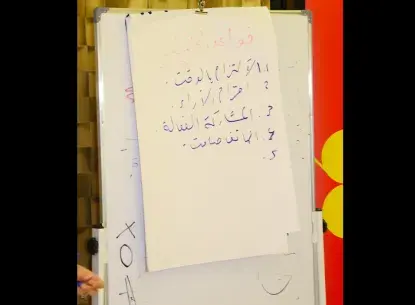 قواعد
1. الالتزام بالوقت.
2 احترام الآراء.
3. المشاركة الفعالة.
4. الهاتف صامت.
5.
XO